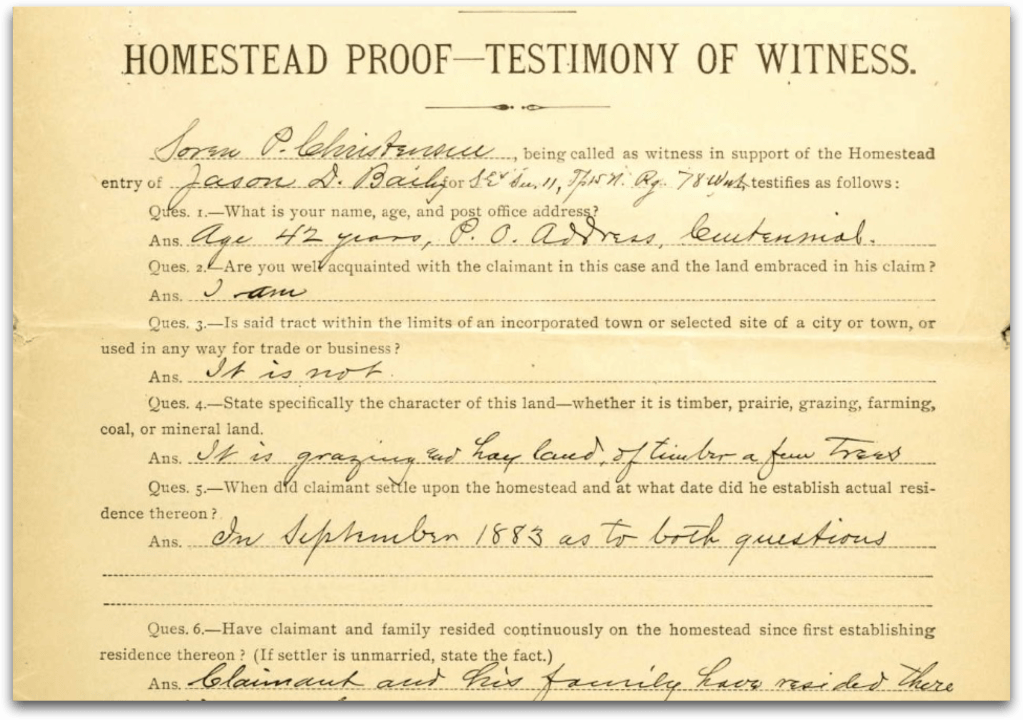 HOMESTEAD PROOF—TESTIMONY OF WITNESS.
Soren P. Christensen, being called as witness in support of the Homestead
entry of Jason D. Baily for SE¼ Sec. 11, Tp 15 N. Rg. 78 West, testifies as follows:
Ques. 1.—What is your name, age, and post office address?
Ans. Age 42 years, P. O. Address, Centennial.
Ques. 2.—Are you well acquainted with the claimant in this case and the land embraced in his claim?
Ans. I am
Ques. 3.—Is said tract within the limits of an incorporated town or selected site of a city or town, or
used in any way for trade or business?
Ans. It is not.
Ques. 4.—State specifically the character of this land—whether it is timber, prairie, grazing, farming,
coal, or mineral land.
Ans. It is grazing and hay land, of timber a few trees
Ques. 5.—When did claimant settle upon the homestead and at what date did he establish actual resi-
dence thereon?
Ans. In September 1883 as to both questions
Ques. 6.—Have claimant and family resided continuously on the homestead since first establishing
residence thereon? (If settler is unmarried, state the fact.)
Ans. Claimant and his family have resided there